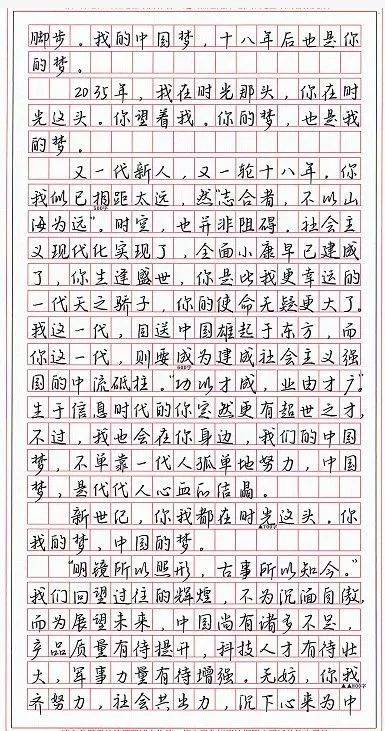 脚步。我的中国梦，十八年后也是你
的梦。
2035年，我在时光那头，你在时
光这头。你望着我。你的梦，也是我
的梦。
又一代新人，又一轮十八年。你
我似已相距太远，然“志合者，不以山
海为远”。时空，也并非阻碍。社会主
义现代化实现了，全面小康早已建成
了，你生逢盛世，你是比我更幸运的
一代天之骄子，你的使命无疑更大了。
我这一代，目送中国雄起于东方，而
你这一代，则要成为建成社会主义强
国的中流砥柱。“功以才成，业由才广”。
生于信息时代的你突然更有超世之才，
不过，我也会在你身边，我们的中国
梦，不单靠一代人孤单地努力，中国
梦，是代代人心血的结晶。
新世纪，你我都在时光这头。你
我的梦，中国的梦。
“明镜所以照形，古事所以知今。”
我们回望过往的辉煌，不为沉湎自傲，
而为展望未来，中国尚有诸多不足，
产品质量有待提升，科技人才有待壮
大，军事力量有待增强。无妨，你我
齐努力，社会共出力，沉下心来为中